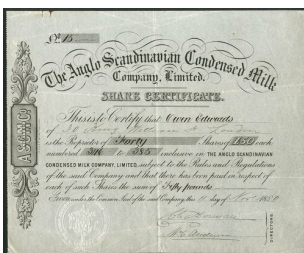 No. 15
The Anglo Scandinavian Condensed Milk
Company, Limited.
SHARE CERTIFICATE.
This is to Certify that Owen Edwards
of 30 King William St
is the Proprietor of Forty Shares of £50 each
numbered 346 to 385 inclusive in THE ANGLO SCANDINAVIAN
CONDENSED MILK COMPANY, LIMITED, subject to the Rules and Regulations
of the said Company and that there has been paid in respect of
each of such Shares the sum of Fifty pounds
GIVEN under the Common Seal of the said Company, this 11 day of Nov 1880
DIRECTORS